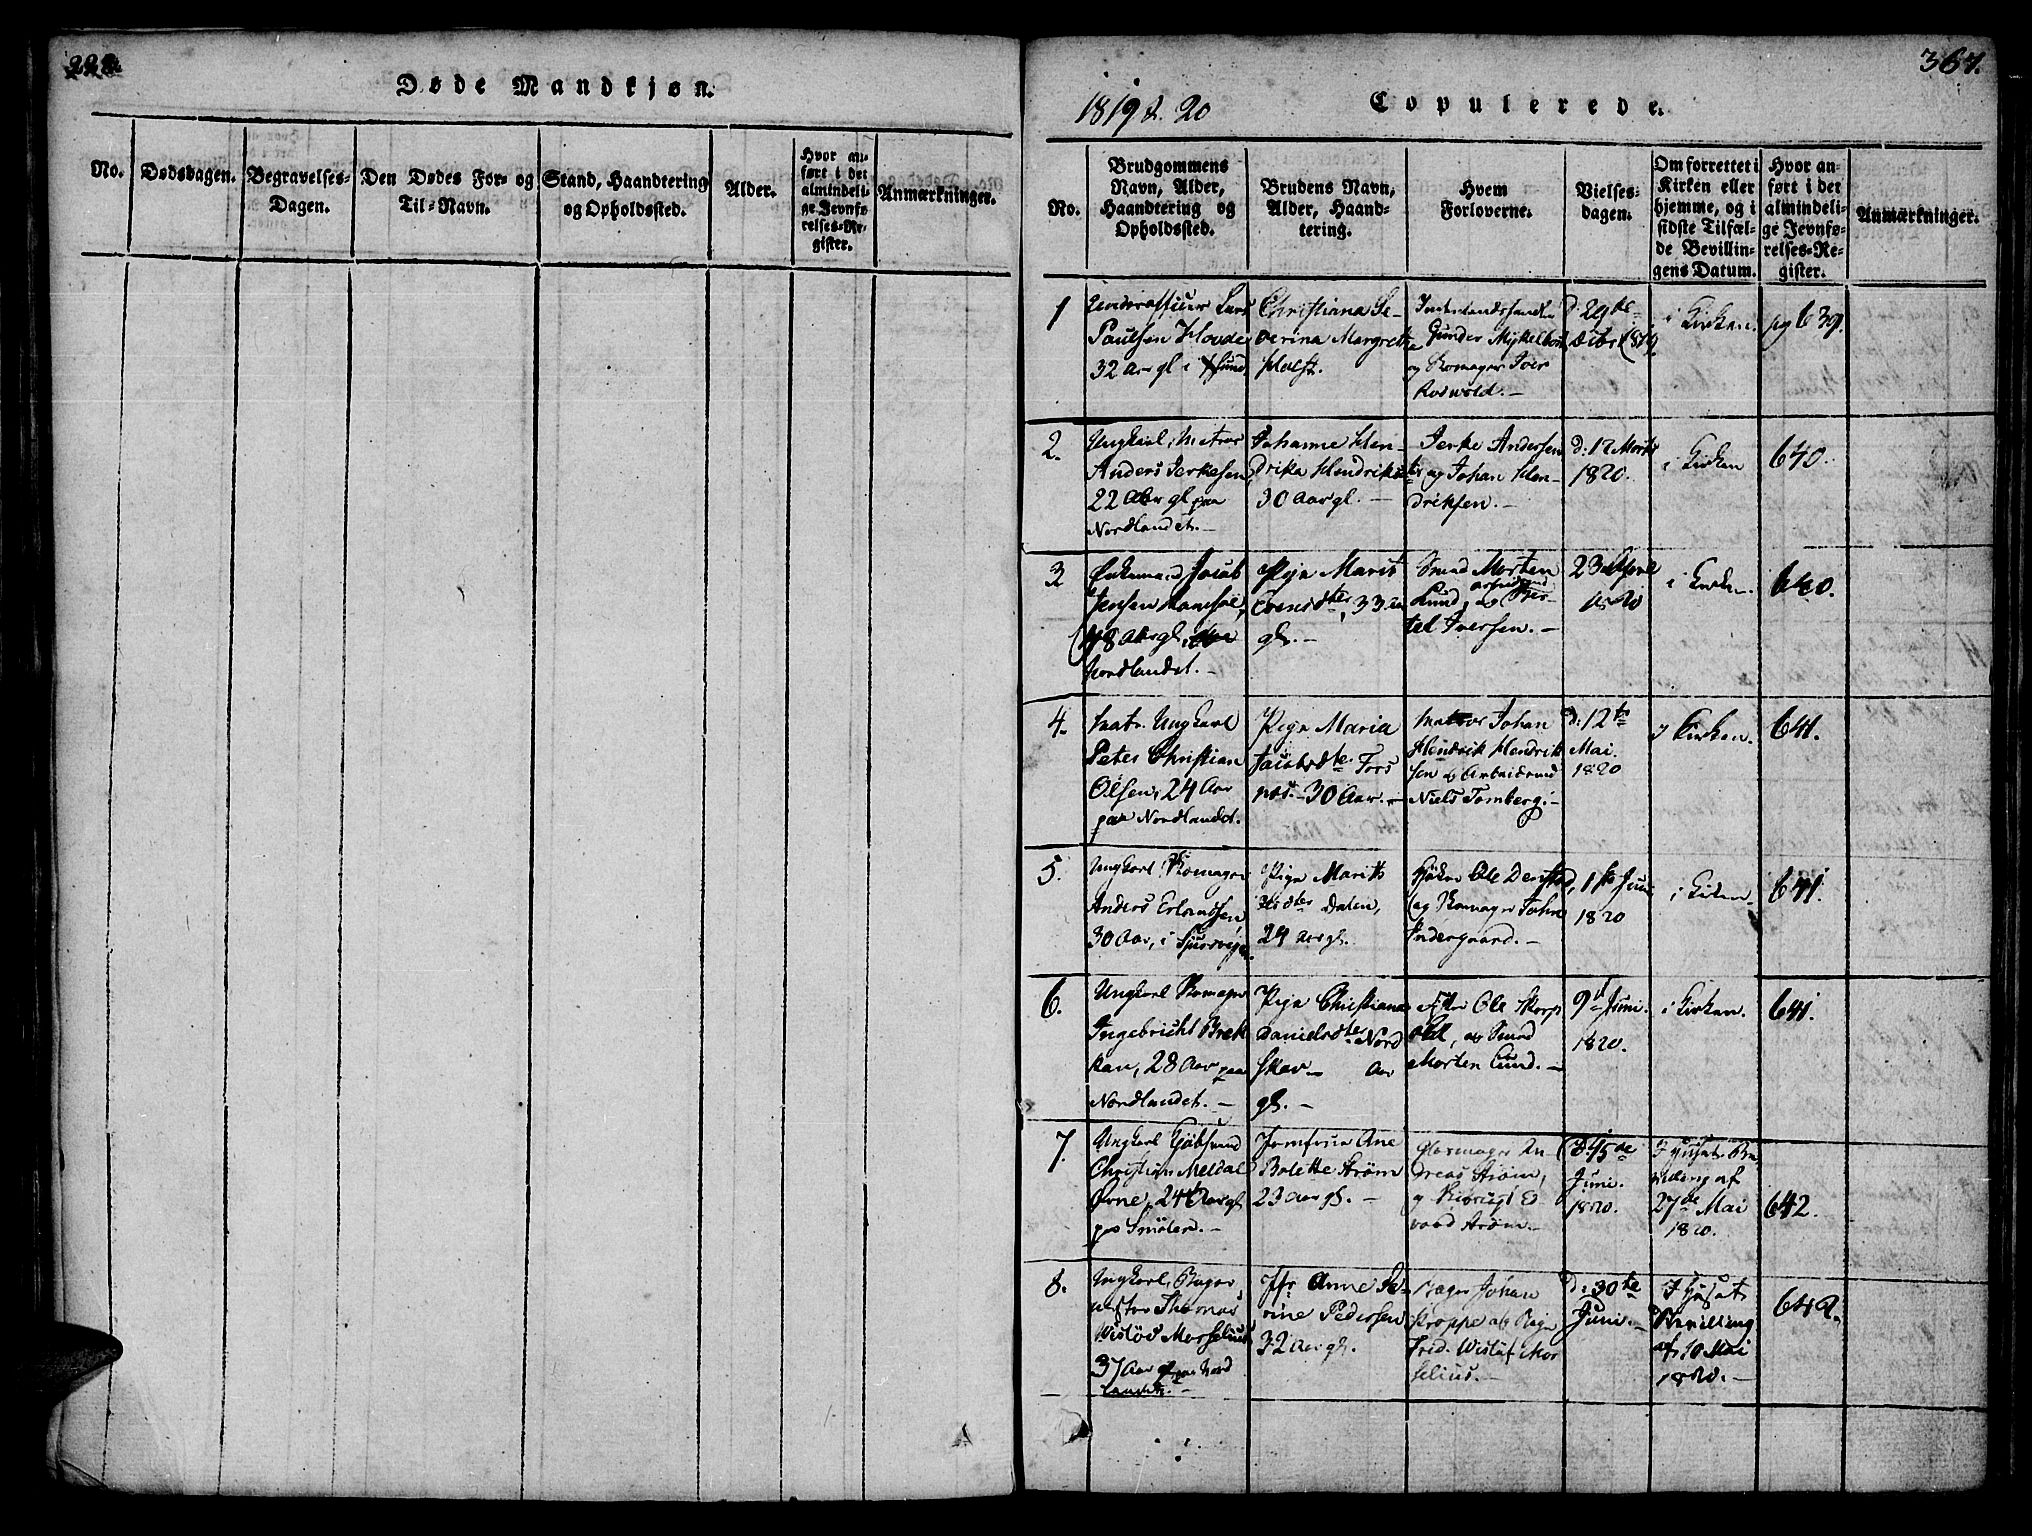 222.
Døde Mandkjøn.
No.
Dødsdagen.
Begravelses-
Dagen.
Den Dødes For- og
Til-Navn.
Stand, Haandtering
og Opholdssted.
Alder.
Hvor an-
ført i det
almindeli-
ge Jevnfø-
relses-Re-
gister.
Anmærkninger.
367.
1819 & 20
Copulerede.
No.
Brudgommens
Navn, Alder,
Haandtering og
Opholdssted.
Brudens Navn,
Alder, Haand-
tering.
Hvem
Forloverne.
Vielses-
dagen.
Om forrettet i
Kirken eller
hjemme, og i
sidste Tilfæl-
de Bevillin-
gens Datum.
Hvor an-
ført i det
almindeli-
ge Jevnfø-
relses-Re-
gister.
Anmærkninger.
1
Underofficier Lars
Paulsen Hovde
32 Aar gl i
Christiana Se-
verina Margrethe
Holst.
Gunder
og Romager Iver
Rodvold.
d. 29de
Decbr 1819.
i Kirken.
pg 639.
2.
Ungkarl, Matros
Anders Jerkesen,
22 Aar gl paa
Nordlandet.
Johanne Hen-
drika Hendriks
30 Aar gl.
Jerke Andersen
og Johan Hen-
driksen.
d: 17 Marts
1820.
i Kirken
640.
3
Enkemand Jacob
Jensen
48 Aar gl,
Nordlandet.
Pige Marit
33 Aar
gl.
Smed Morten
Lund, og Ber-
tel Iversen.
23 April
1820
i Kirken.
640.
4.
Matr. Ungkarl
Peter Christian
Olsen, 24 Aar
paa Nordlandet.
Pige Maria
Jacobsdter
30 Aar.
Matros Johan
Hendrik Hendrik
sen og Arbeidsmd
Niels Tomberg.
d: 12te
Mai
1820
i Kirken.
641.
5.
Ungkarl, Romager
Anders Erlandsen,
30 Aar, i
Pige Marith
dter Dalen,
29 Aar gl.
Ole
og Romager John
Indergaard.
1ste Juni
1820
i Kirken.
641.
6.
Ungkarl Romager
Ingebricht Brek
kan, 28 Aar paa
Nordlandet.
Pige Christiana
Danielsdter Nord
Skav Aar
gl.
Ole Skorp
og Smed
Morten Lund.
9de Juni.
1820.
i Kirken.
641.
7.
Ungkarl Kjøbmand
Christian Meldal
24 Aar gl
paa Smölen.
Jomfrue Ane
Bolette Strøm
23 Aar gl.
Glasmager An
dreas Strøm,
og Ed
vard Strøm.
d. 15de
Juni.
1820.
I Huset. Be
vilding af
27de Mai
1820.
642.
8.
Ungkarl, Bager
mester Thomas
Wisløv Morselius
37 Aar gl paa Nord
landet.
Jfr Anne Se-
rine Pedersen
32 Aar gl.
Bager Johan
Kroppe og
Frid. Wisløf Mor
selius.
D: 30te
Juni.
I Huset
Bevilling
af 10 Mai
1820.
642.